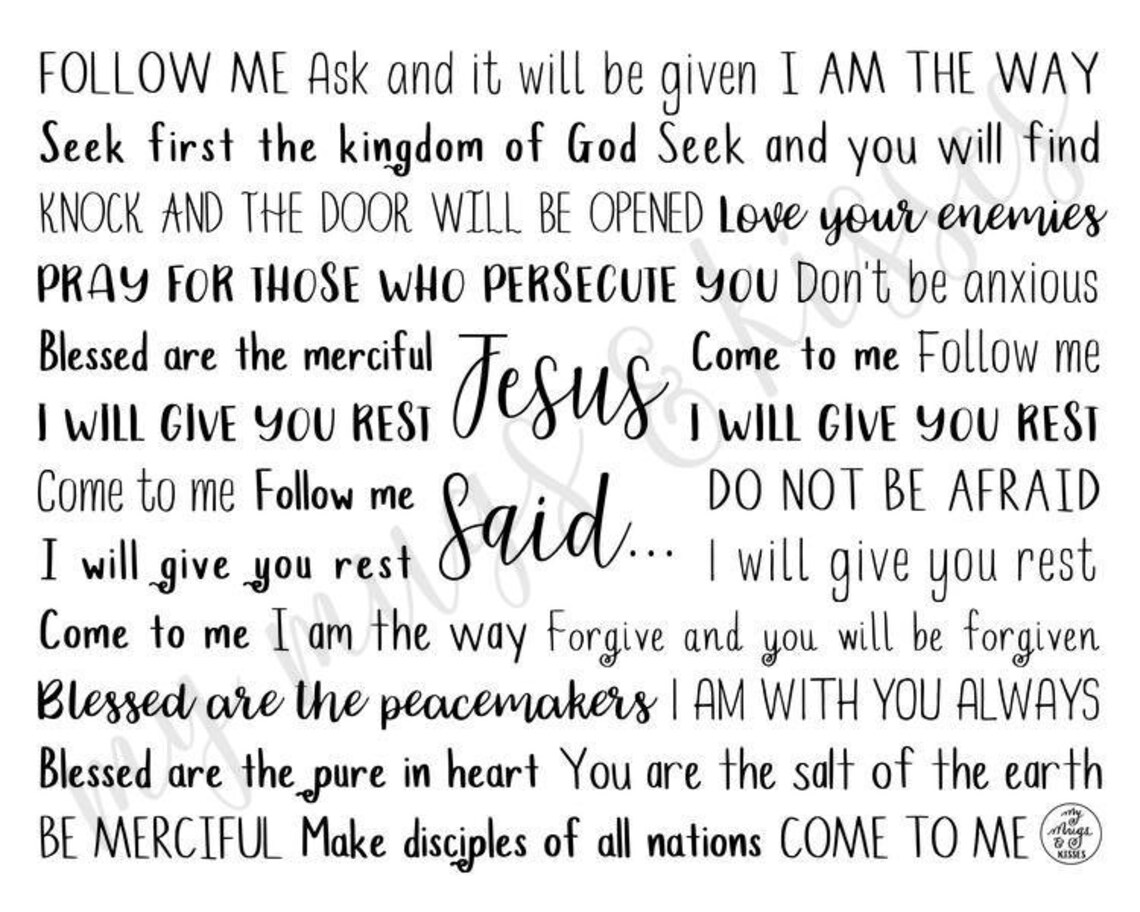 FOLLOW ME Ask and it will be given I AM THE WAY
Seek first the kingdom of God Seek and you will find
KNOCK AND THE DOOR WILL BE OPENED Love your enemies
PRAY FOR THOSE WHO PERSECUTE YOU Don't be anxious
Blessed are the merciful
I WILL GIVE YOU REST
Come to me Follow me
I will give you rest
Jesus
Said...
Come to me Follow me
I WILL GIVE YOU REST
DO NOT BE AFRAID
I will give you rest
Come to me I am the way Forgive and you will be forgiven
Blessed are the peacemakers I AM WITH YOU ALWAYS
Blessed are the pure in heart You are the salt of the earth
BE MERCIFUL Make disciples of all nations COME TO ME
my
Mugs
&
KISSES
my mugs & kisses